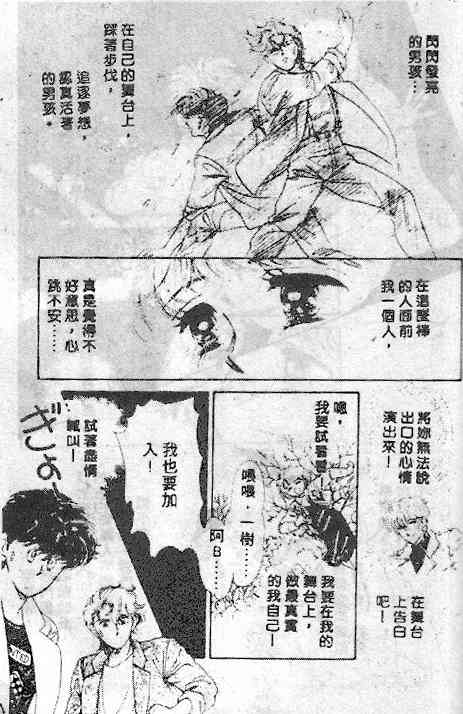 閃閃發亮
的男孩…
在自己的舞台上，
踩著步伐，
追逐夢想，
認真活著
的男孩。
在這麼棒
的人面前
我一個人，
真是覺得不
好意思，心
跳不安……
將妳無法說
出口的心情
演出來！
在舞台
上告白
吧！
嗯，
我要試著看！
喂喂，一樹……
阿B……
我要在我的
舞台上，
做最真實
的我自己！
我也要加
入！
試著盡情
喊叫！
ぎょ〜